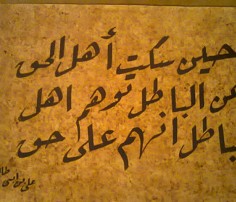 حين سكت أهل الحق
عن الباطل توهم اهل
باطل انهم على حق
علي بن ابي طا